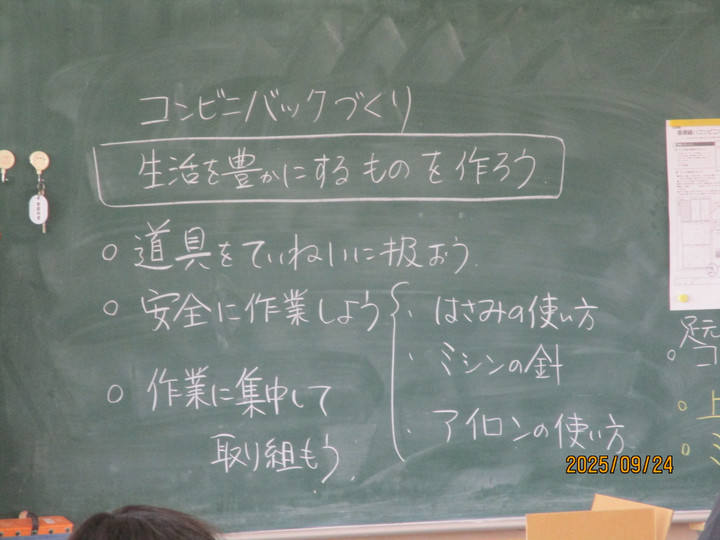 コンビニバックづくり
生活を豊かにするものを作ろう
○道具をていねいに扱おう。
○安全に作業しよう
・はさみの使い方
・ミシンの針
・アイロンの使い方
○作業に集中して
取り組もう。
足元
○コ
○上
○ミ
2025/09/24